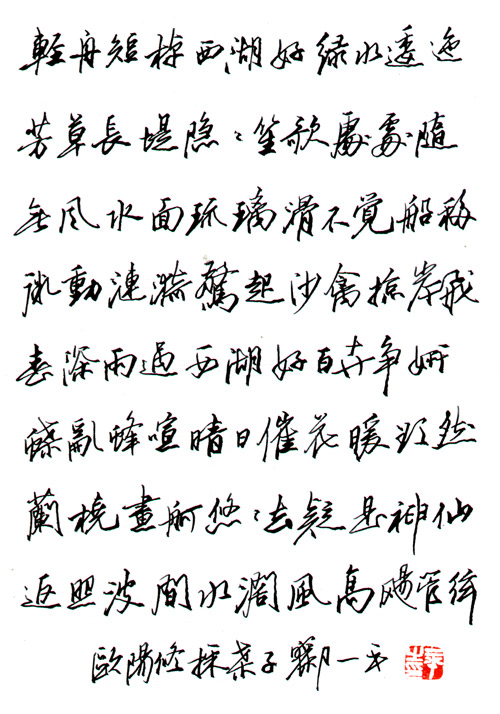 輕舟短棹西湖好绿水逶迤
芳草長堤隐〻笙歌處處隨
無風水面琉璃滑不覚船移
微動漣漪驚起沙禽掠岸飛
春深雨過西湖好百卉争妍
蝶亂蜂喧晴日催花暖欲然
蘭橈畫舸悠〻去疑是神仙
返照波間水闊風高颺管絃
歐陽修採桑子